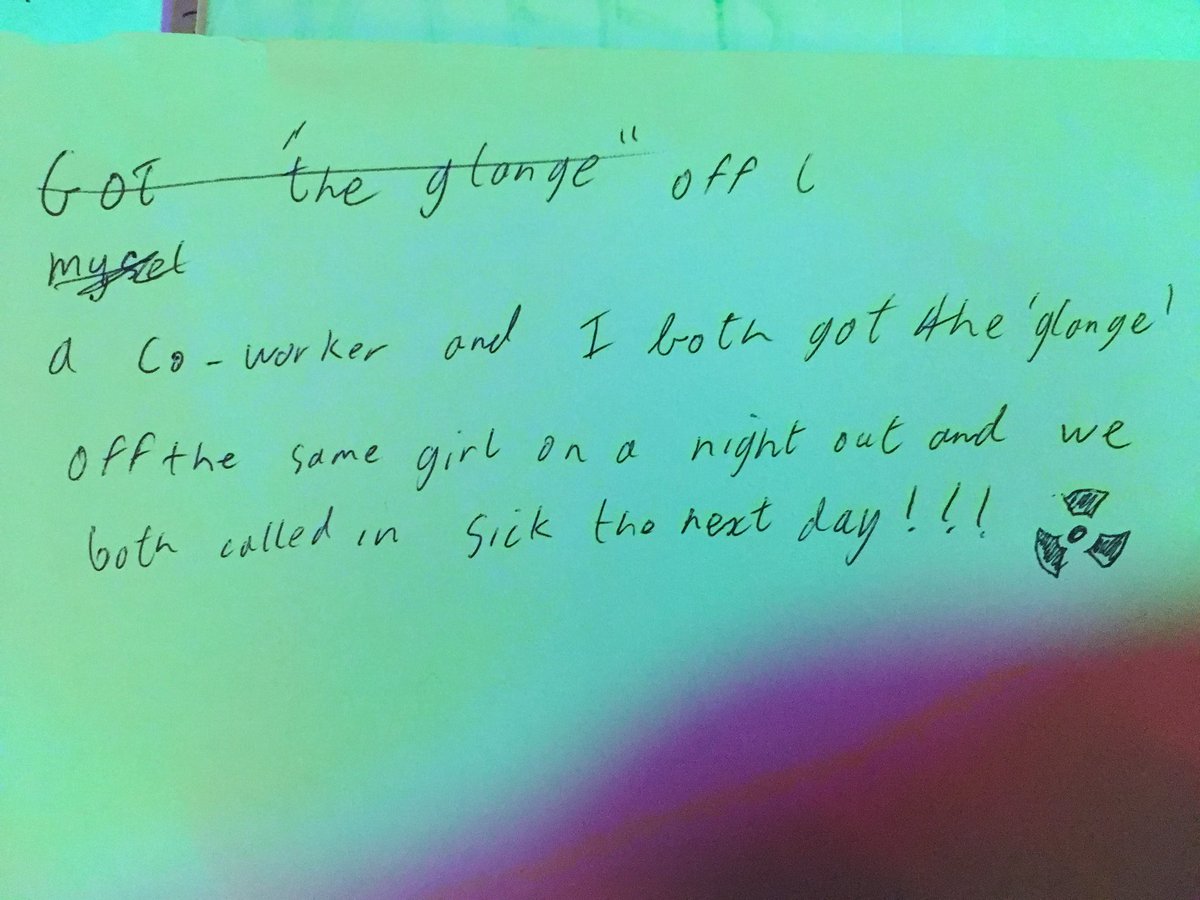 Got "the glange" off (
mysel
a co-worker and I both got the 'glange'
off the same girl on a night out and we
both called in sick the next day!!!